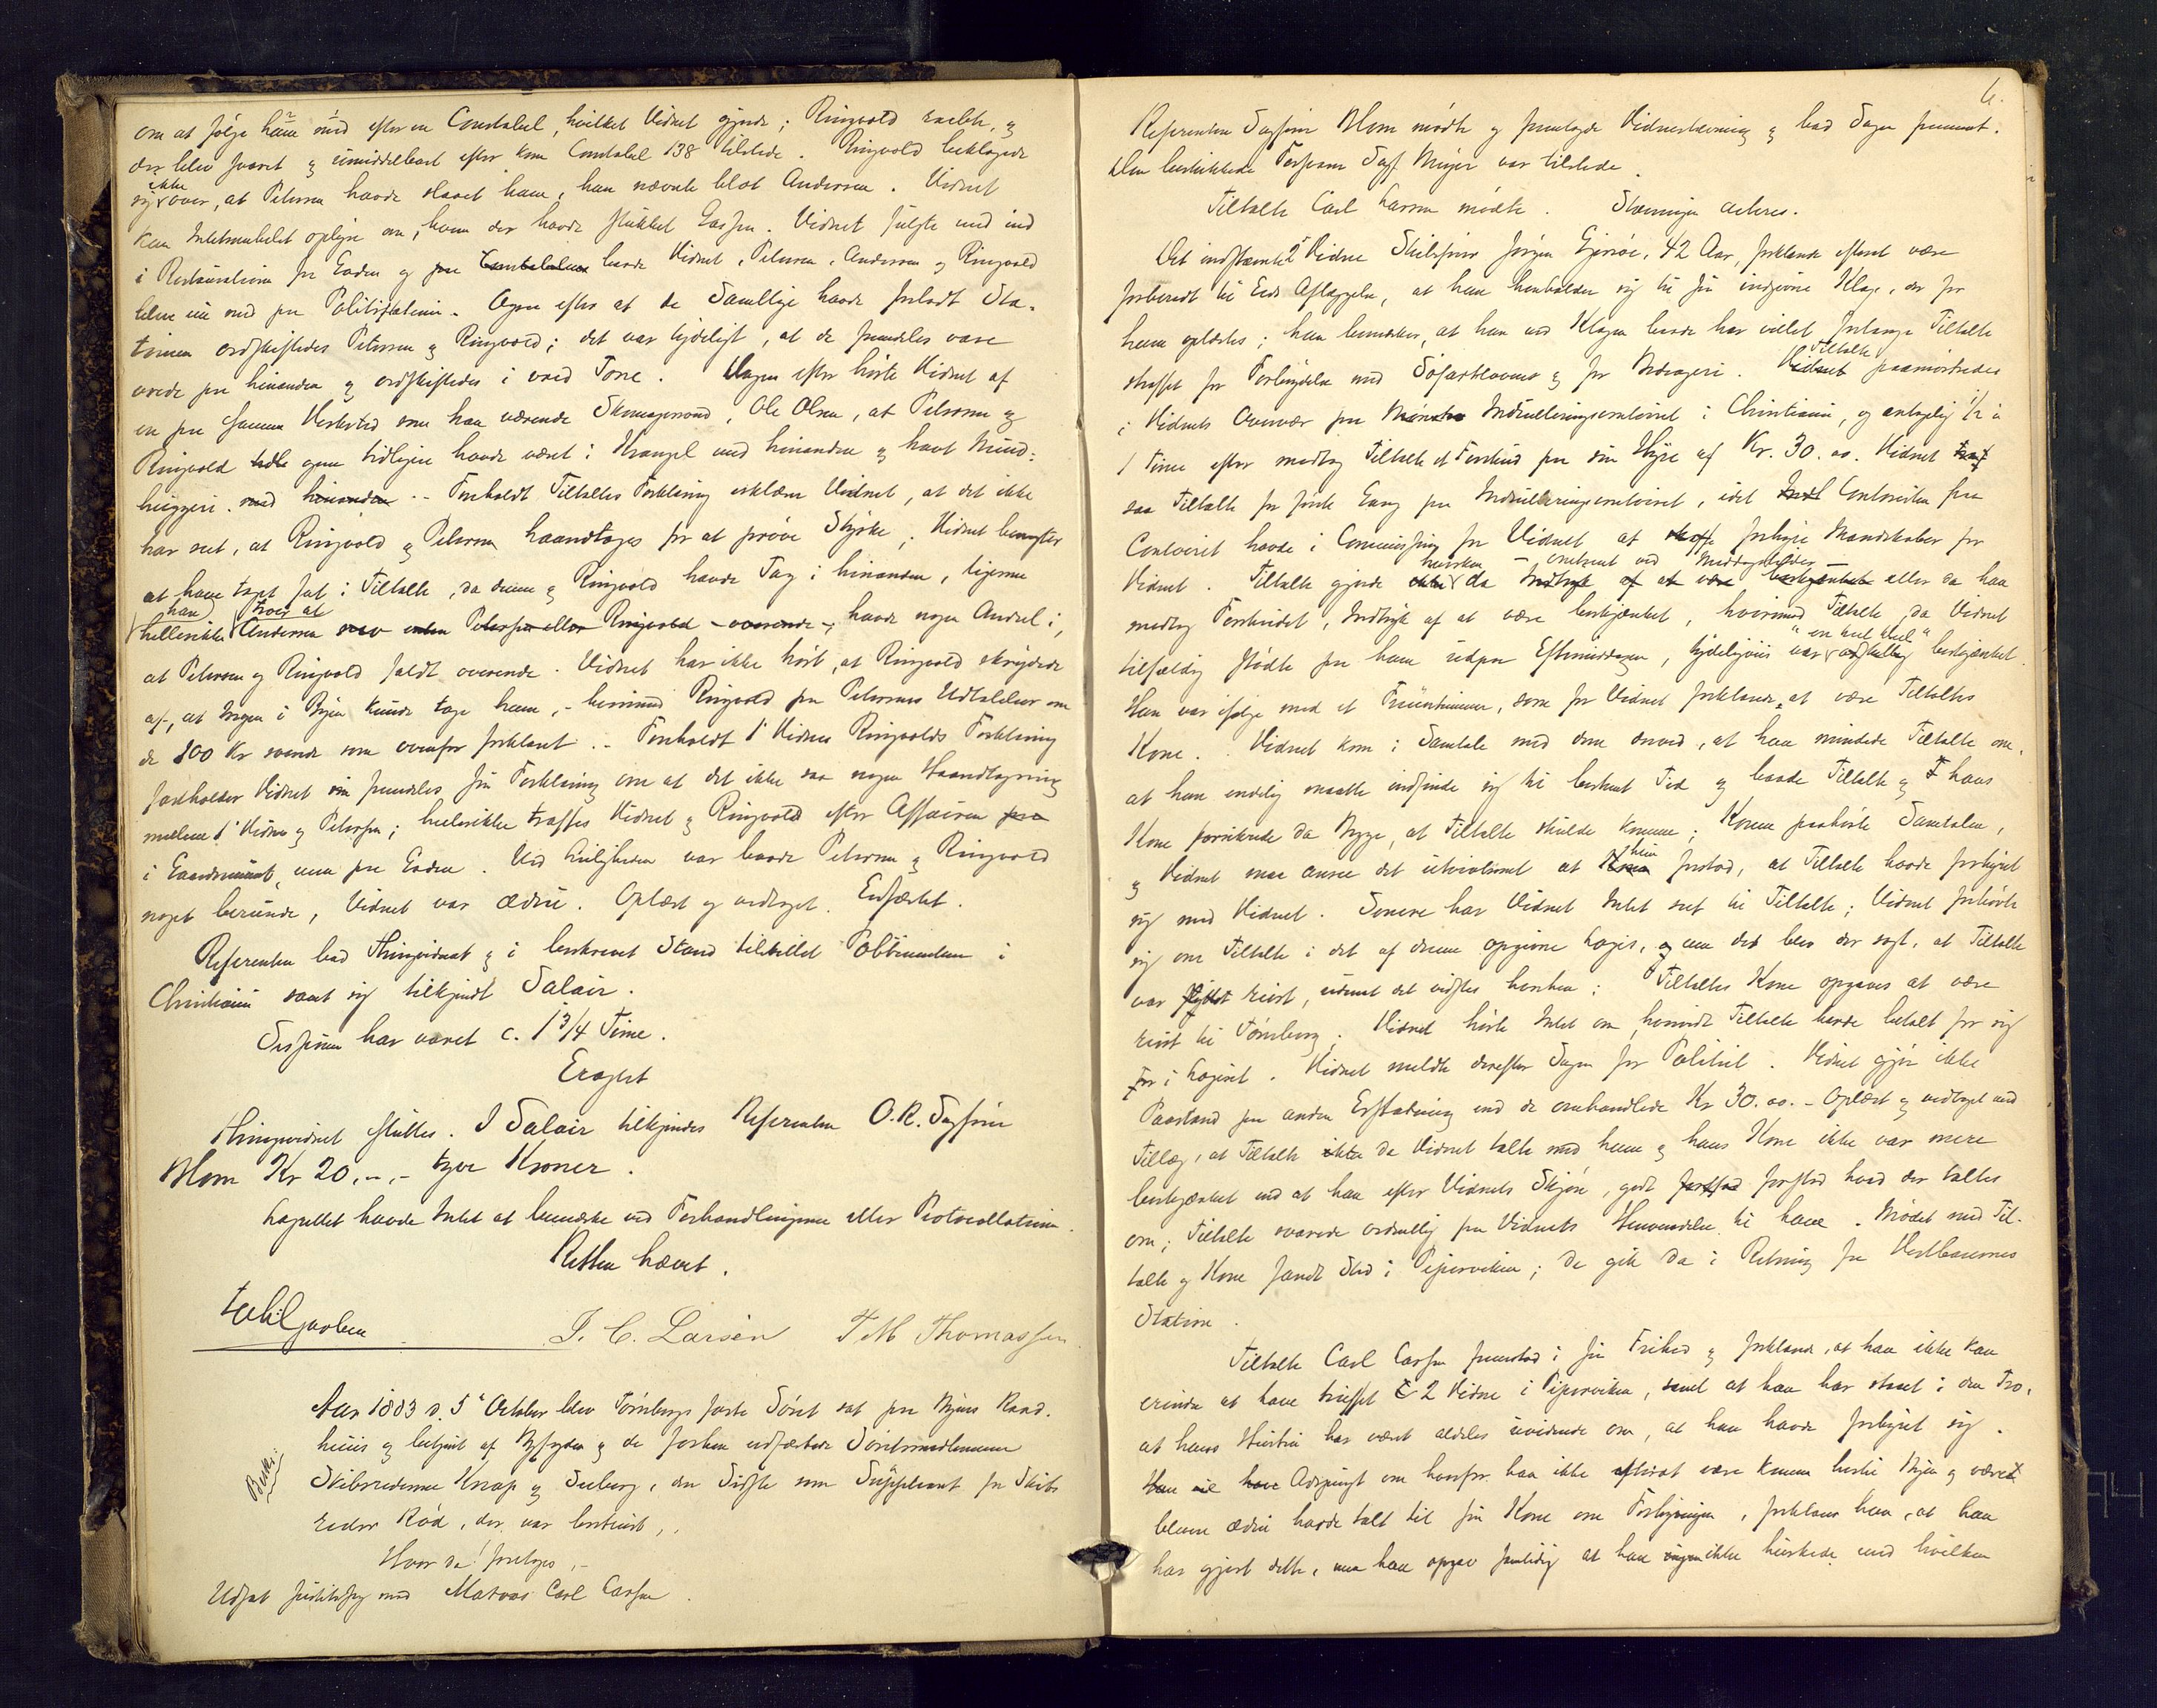 om at følge ham med efter en Constabel, hvilket Vidnet gjorde; Ringvold raabte, og
der blev svaret og umiddelbart efter kom Constabel 138 tilstede. Ringvold beklagede
sig ikke over, at Petersen havde slaaet ham, han nævnte blot Andersen. Vidnet
kan Intetsomhelst oplyse om, hvem der havde slukket Gassen. Vidnet fulgte med ind
i Restaurationen fra Gaden og paa Constabelen havde Vidnet, Petersen, Andersen og Ringvold
blev nu med paa Politistationen. Ogsaa efter at de Samtlige havde forladt Sta-
tionen ordskiftedes Petersen og Ringvold; det var tydeligt, at de fremdeles vare
vrede paa hinanden og ordskiftedes i vred Tone. Dagen efter hørte Vidnet af
en paa samme Værksted som han værende Skomagersvend, Ole Olsen, at Petersen og
Ringvold ogsaa tidligere havde været i Krangel med hinanden og havt Mund-
huggeri med hinanden. - Foreholdt Tiltaltes Forklaring erklærer Vidnet, at det ikke
har seet, at Ringvold og Petersen haandtoges for at prøve Styrke; Vidnet benegter
at have taget fat i Tiltalte, da denne og Ringvold havde Tag i hinanden, ligesom
han hellerikke troer at Andersen enten Petersen eller Ringvold - overende -, havde nogen Andel i,
at Petersen og Ringvold faldt overende. Vidnet har ikke hørt, at Ringvold skrydede
af, at Ingen i Byen kunde tage ham, - hvorimod Ringvold paa Petersens Udtalelser om
de 800 Kr svarede som ovenfor forklaret. - Foreholdt 1' Vidnes Ringvolds Forklaring
fastholder Vidnet fremdeles sin Forklaring om at det ikke saa nogen Haandtagning
mellem 1' Vidne og Petersen; hellerikke traffes Vidnet og Ringvold efter Affairen paa
i Gaardsrummet, men paa Gaden. Ved Leiligheden var baade Petersen og Ringvold
noget berusede, Vidnet var ædru. Oplæst og vedtaget. Edfæstet.
Referenten bad Thingsvidnet og i beskreven Stand tilstillet Politikammeret i
Christiania samt sig tilkjendt Salair.
Sessionen har varet c. 1 3/4 Time.
Eragtet
Thingsvidnet sluttes. I Salair tilkjendes Referenten O.R. Sagfører
Blom Kr 20,-,- tyve Kroner.
Lagrettet havde Intet at bemærke ved Forhandlingerne eller Protocollationen.
Retten hævet.
J. C. Larsen T M Thomassen
Aar 1883 d. 5' October blev Tønsbergs faste Søret sat paa Byens Raad-
huus og betjent af Byfogden og de forhen edfæstede Søretsmedlemmer
Skibsrederne Knap og Seeberg, den Sidste som Suppleant for Skibs
reder Rød, der var bortreist,
Hvor da! foretoges,-
Udsat Justitssag mod Matros Carl Larsen
6.
Referenten Sagfører Blom mødte og fremlagde Vidnestævning og bad Sagen fremmet.
Den beskikkede Forsvarer Sagf. Meyer var tilstede.
Tiltalte Carl Larsen mødte. Stævningen acteres.
Det indstævnte 2' Vidne Skibsfører Jørgen Gjerøe, 42 Aar, forklarede efterat være
forberedt til Eds Aflæggelse, at han henholder sig til sin indgivne Klage, der for
ham oplæstes; han bemærker, at han ved Klagen baade har villet forlange Tiltalte
straffet for Forbrydelse mod Søfartsloven og for Bedrageri. Tiltalte paamønstredes
i Vidnets Overvær paa Indrulleringscontoiret i Christiania, og antagelig 1/2 à
1 Time efter modtog Tiltalte et Forskud paa sin Hyre af Kr. 30.00. Vidnet traf
saa Tiltalte for første Gang paa Indrulleringscontoiret, idet Contoristen paa
Contoiret havde i Commission for Vidnet at skaffe forhyre Mandskaber for
Vidnet. Tiltalte gjorde hverken da - omtrent ved Middagstider - eller da han
modtog Forskudet, Indtryk af at være beskjænket, hvorimod Tiltalte, da Vidnet
tilfældig stødte paa ham udpaa Eftermiddagen, tydeligviis var "en hel Deel" beskjænket.
Han var ifølge med et Fruentimmer, som for Vidnet forklarede at være Tiltaltes
Kone. Vidnet kom i Samtale med dem derved, at han mindede Tiltalte om,
at han endelig maatte indfinde sig til bestemt Tid og baade Tiltalte og hans
Kone forsikrede da Begge, at Tiltalte skulde komme; Konen paahørte Samtalen,
og Vidnet maa ansee det utvivlsomt at hun forstod, at Tiltalte havde forhyret
sig med Vidnet. Senere har Vidnet Intet seet til Tiltalte; Vidnet forhørte
sig om Tiltalte i det af denne opgivne Logis, og men der blev der sagt, at Tiltalte
var flyttet reist, uden at det vidstes hvorhen; Tiltaltes Kone opgaves at være
reist til Tønsberg. Vidnet hørte Intet om, hvorvidt Tiltalte havde betalt for sig
i Logiset. Vidnet meldte derefter Sagen for Politiet. Vidnet gjør ikke
Paastand paa anden Erstatning end de omhandlede Kr 30.00. - Oplæst og vedtaget med
Tillæg, at Tiltalte ikke da Vidnet talte med ham og hans Kone ikke var mere
beskjænket end at han efter Vidnets Skjøn, godt forstod hvad der taltes
om; Tiltalte svarede ordentlig paa Vidnets Henvendelse til ham. Mødet med Til-
talte og Kone fandt Sted i Pipervigen; De gik da i Retning fra Vestbanernes
Station.
Tiltalte Carl Larsen fremstod i sin Frihed og forklarede, at han ikke kan
erindre at have truffet 2 Vidne i Pipervigen, samt at han har staaet i den Tro,
at hans Hustru har været aldeles uvidende om, at han havde forhyret sig.
Adspurgt om hvorfor han ikke efterat være kommen hertil Byen og været
bleven ædru havde talt til sin Kone om Forhyringen, forklarer han, at han
har gjort dette, men han opgav samtidig at han ikke huskede med hvilken